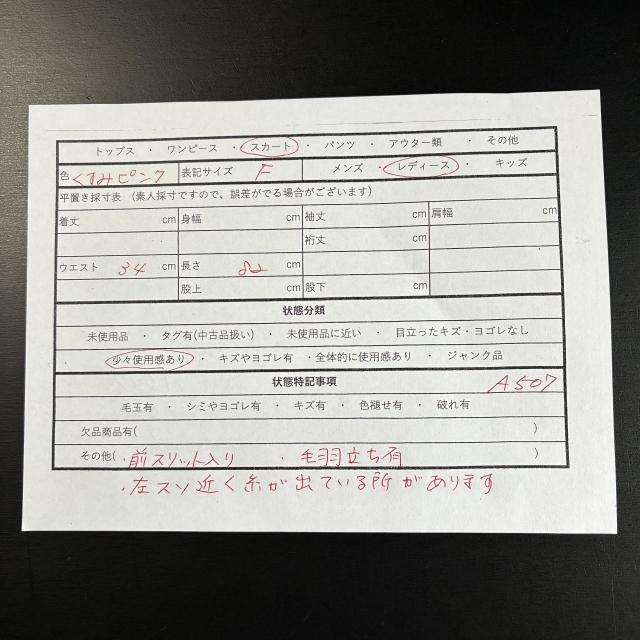 トップス ・ ワンピース ・ スカート ・ パンツ ・ アウター類 ・ その他
色 くすみピンク 表記サイズ F メンズ ・ レディース ・ キッズ
平置き採寸表 (素人採寸ですので、誤差がでる場合がございます)
着丈 cm 身幅 cm 袖丈 cm 肩幅 cm
裄丈 cm
ウエスト 34 cm 長さ 82 cm
股上 cm 股下 cm
状態分類
未使用品 ・ タグ有(中古品扱い) ・ 未使用品に近い ・ 目立ったキズ・ヨゴレなし
・ 少々使用感あり ・ キズやヨゴレ有 ・全体的に使用感あり ・ ジャンク品
状態特記事項 A507
毛玉有 ・ シミやヨゴレ有 ・ キズ有 ・ 色褪せ有 ・ 破れ有
欠品商品有( )
その他( ・前スリット入り ・毛羽立ち有 )
・左スソ近く糸が出ている所があります